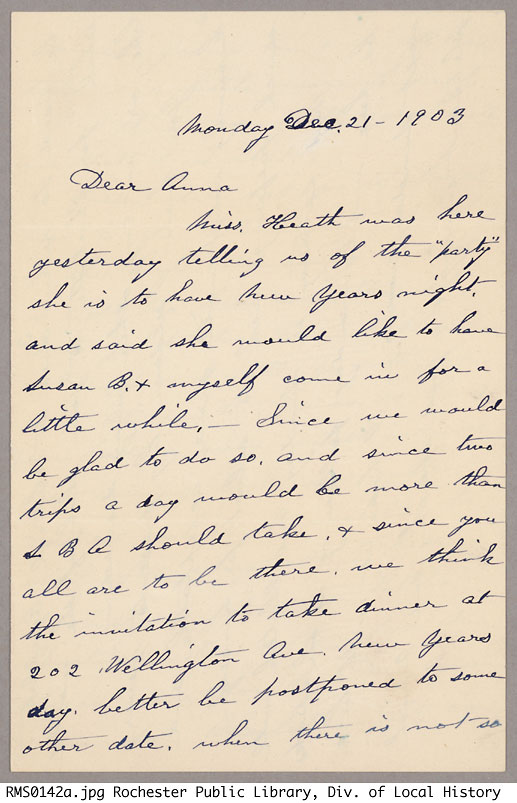 Monday Dec. 21 - 1903
Dear Anna
Miss. Heath was here
yesterday telling us of the "party"
she is to have New Years night.
and said she would like to have
Susan B. & myself come in for a
little while, - Since we would
be glad to do so, and since two
trips a day would be more than
S B A should take, & since you
all are to be there, we think
the invitation to take dinner at
202 Wellington Ave. New Years
day, better be postponed to some
other date, when there is not so
RMS0142a.jpg Rochester Public Library, Div. of Local History